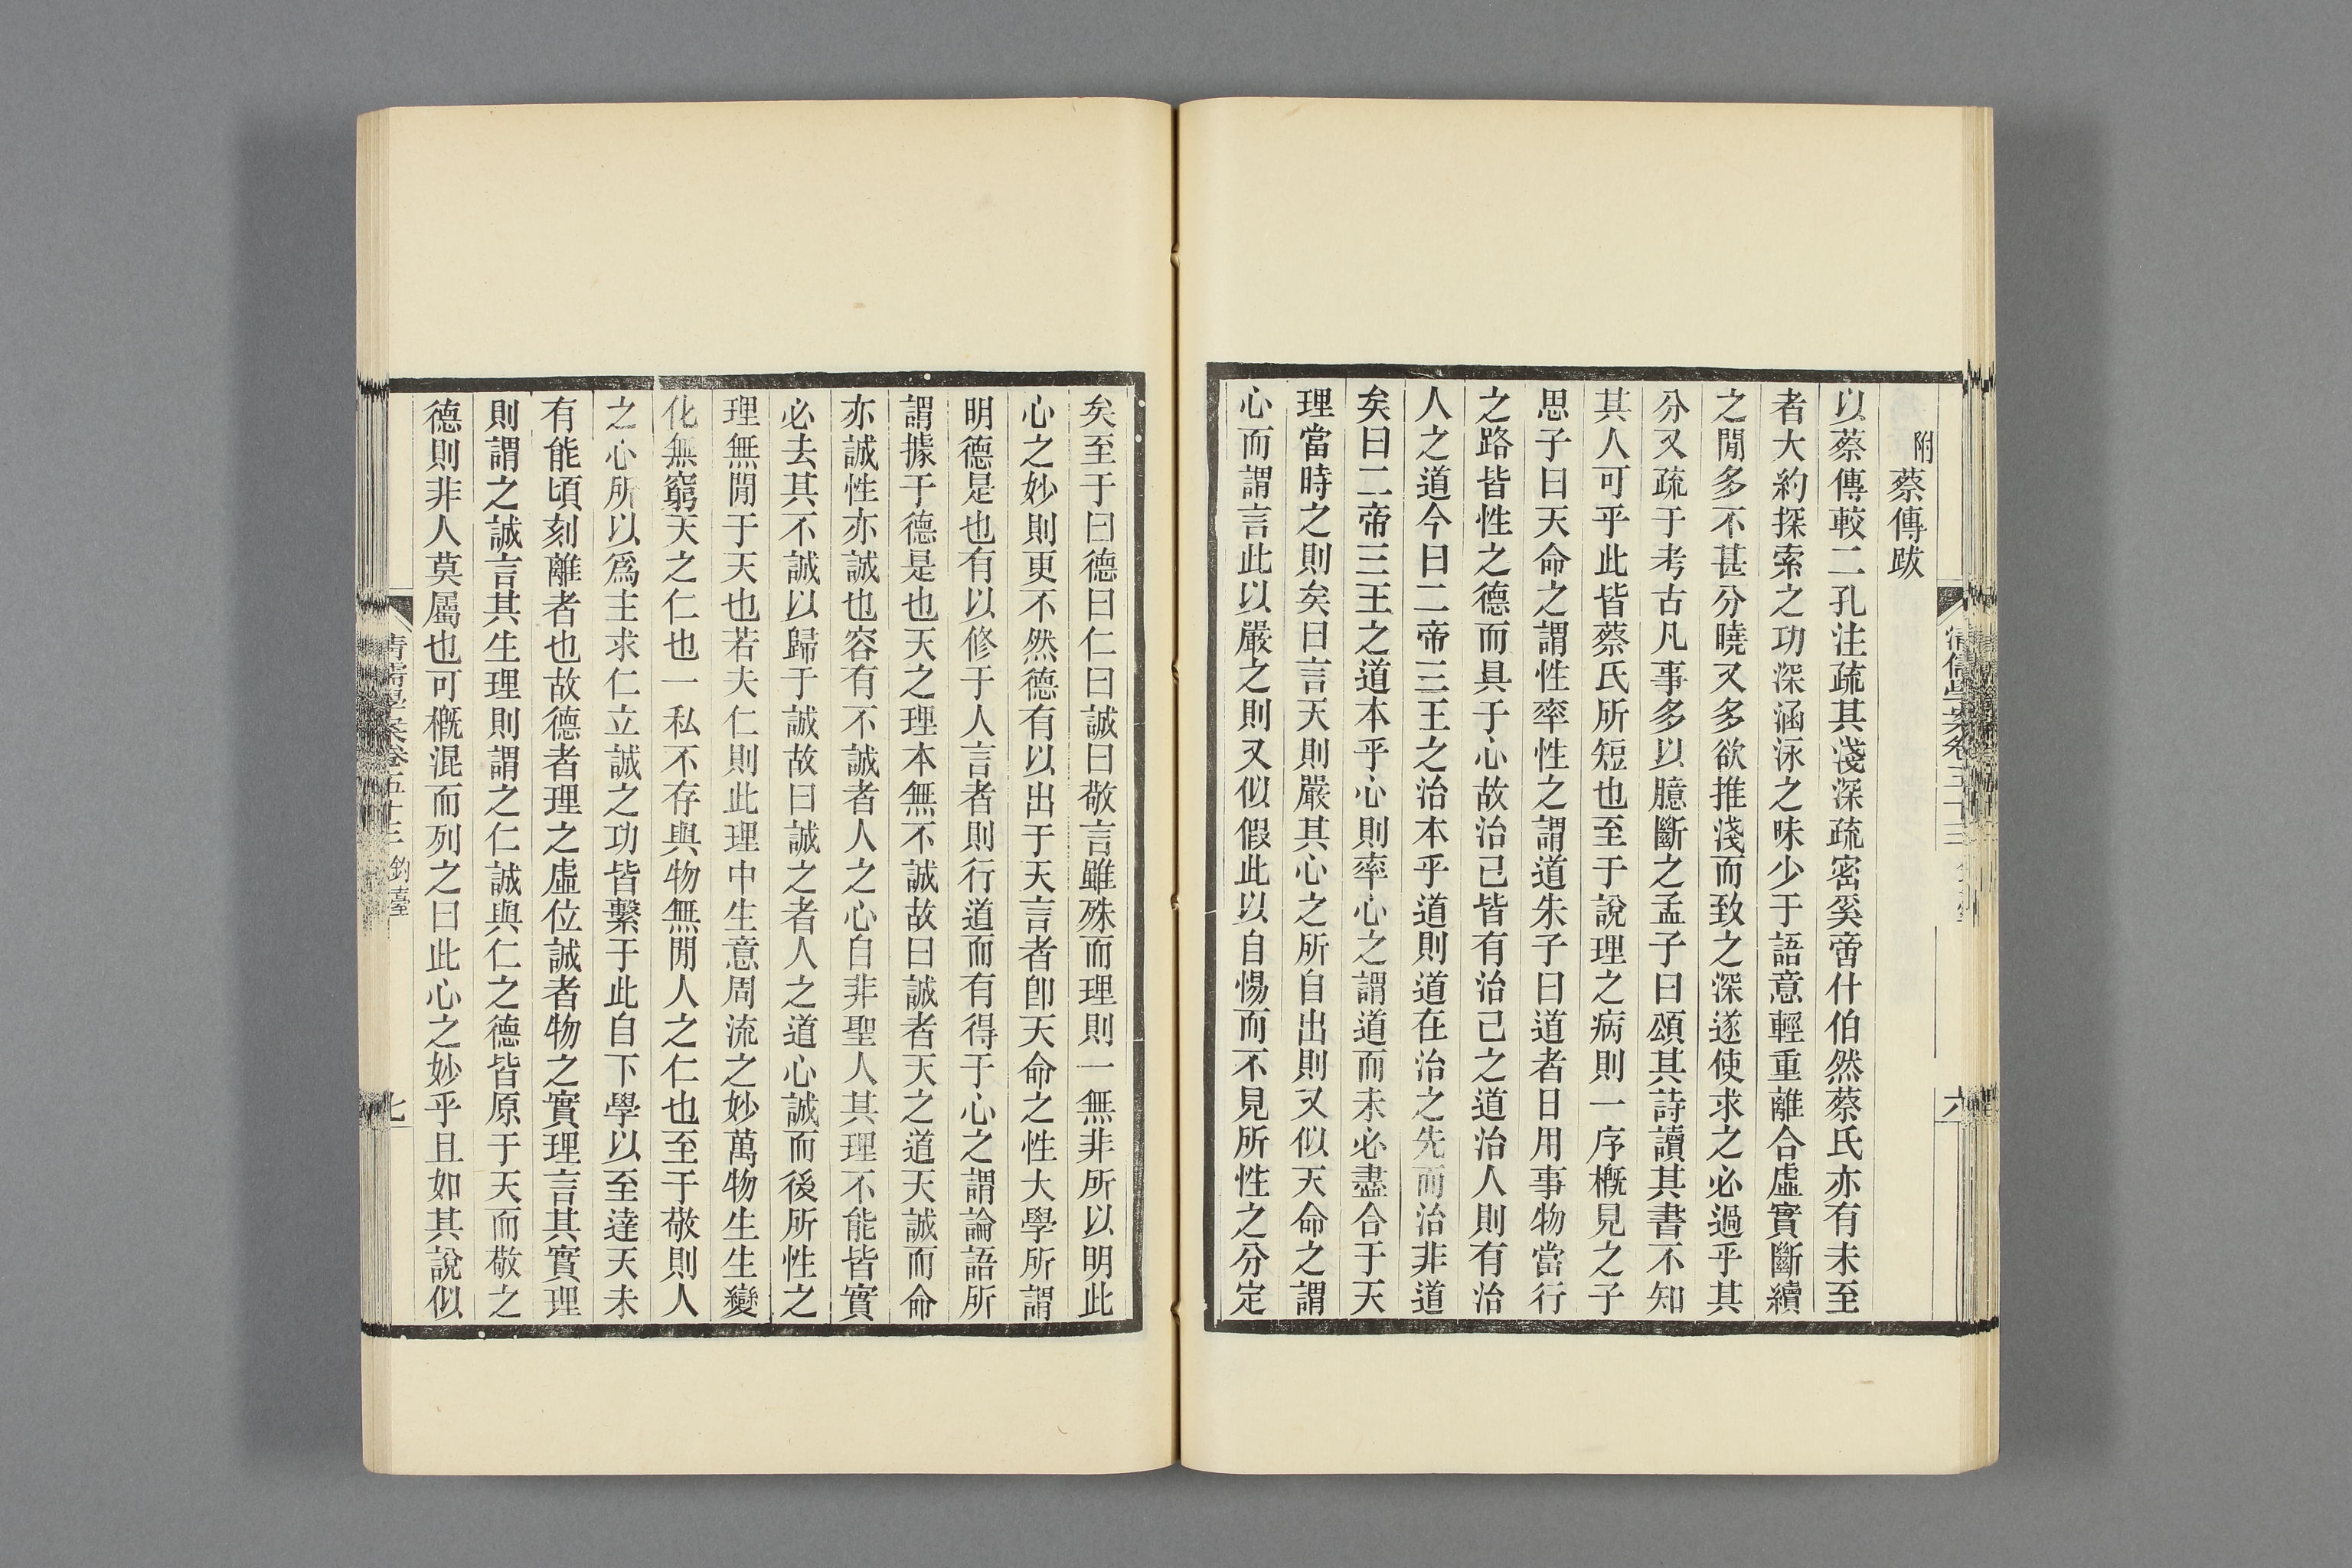 附蔡傳跋
以蔡傳較二孔注疏其淺深疏密奚啻什伯然蔡氏亦有未至
者大約探索之功深涵泳之味少于語意輕重離合虛實斷續
之閒多不甚分曉又多欲推淺而致之深遂使求之必過乎其
分又疏于考古凡事多以臆斷之孟子曰頌其詩讀其書不知
其人可乎此皆蔡氏所短也至于說理之病則一序概見之子
思子曰天命之謂性率性之謂道朱子曰道者日用事物當行
之路皆性之德而具于心故治己皆有治己之道治人則有治
人之道今曰二帝三王之治本乎道則道在治之先而治非道
矣曰二帝三王之道本乎心則率心之謂道而未必盡合于天
理當時之則矣曰言天則嚴其心之所自出則又似天命之謂
心而謂言此以嚴之則又似假此以自惕而不見所性之分定
清儒學案卷五十三
六
矣至于曰德曰仁曰誠曰敬言雖殊而理則一無非所以明此
心之妙則更不然德有以出于天言者卽天命之性大學所謂
明德是也有以修于人言者則行道而有得于心之謂論語所
謂據于德是也天之理本無不誠故曰誠者天之道天誠而命
亦誠性亦誠也容有不誠者人之心自非聖人其理不能皆實
必去其不誠以歸于誠故曰誠之者人之道心誠而後所性之
理無閒于天也若夫仁則此理中生意周流之妙萬物生生變
化無窮天之仁也一私不存與物無閒人之仁也至于敬則人
之心所以爲主求仁立誠之功皆繫于此自下學以至達天未
有能頃刻離者也故德者理之虛位誠者物之實理言其實理
則謂之誠言其生理則謂之仁誠與仁之德皆原于天而敬之
德則非人莫屬也可概混而列之曰此心之妙乎且如其說似
清儒學案卷五十三 鈞臺
七